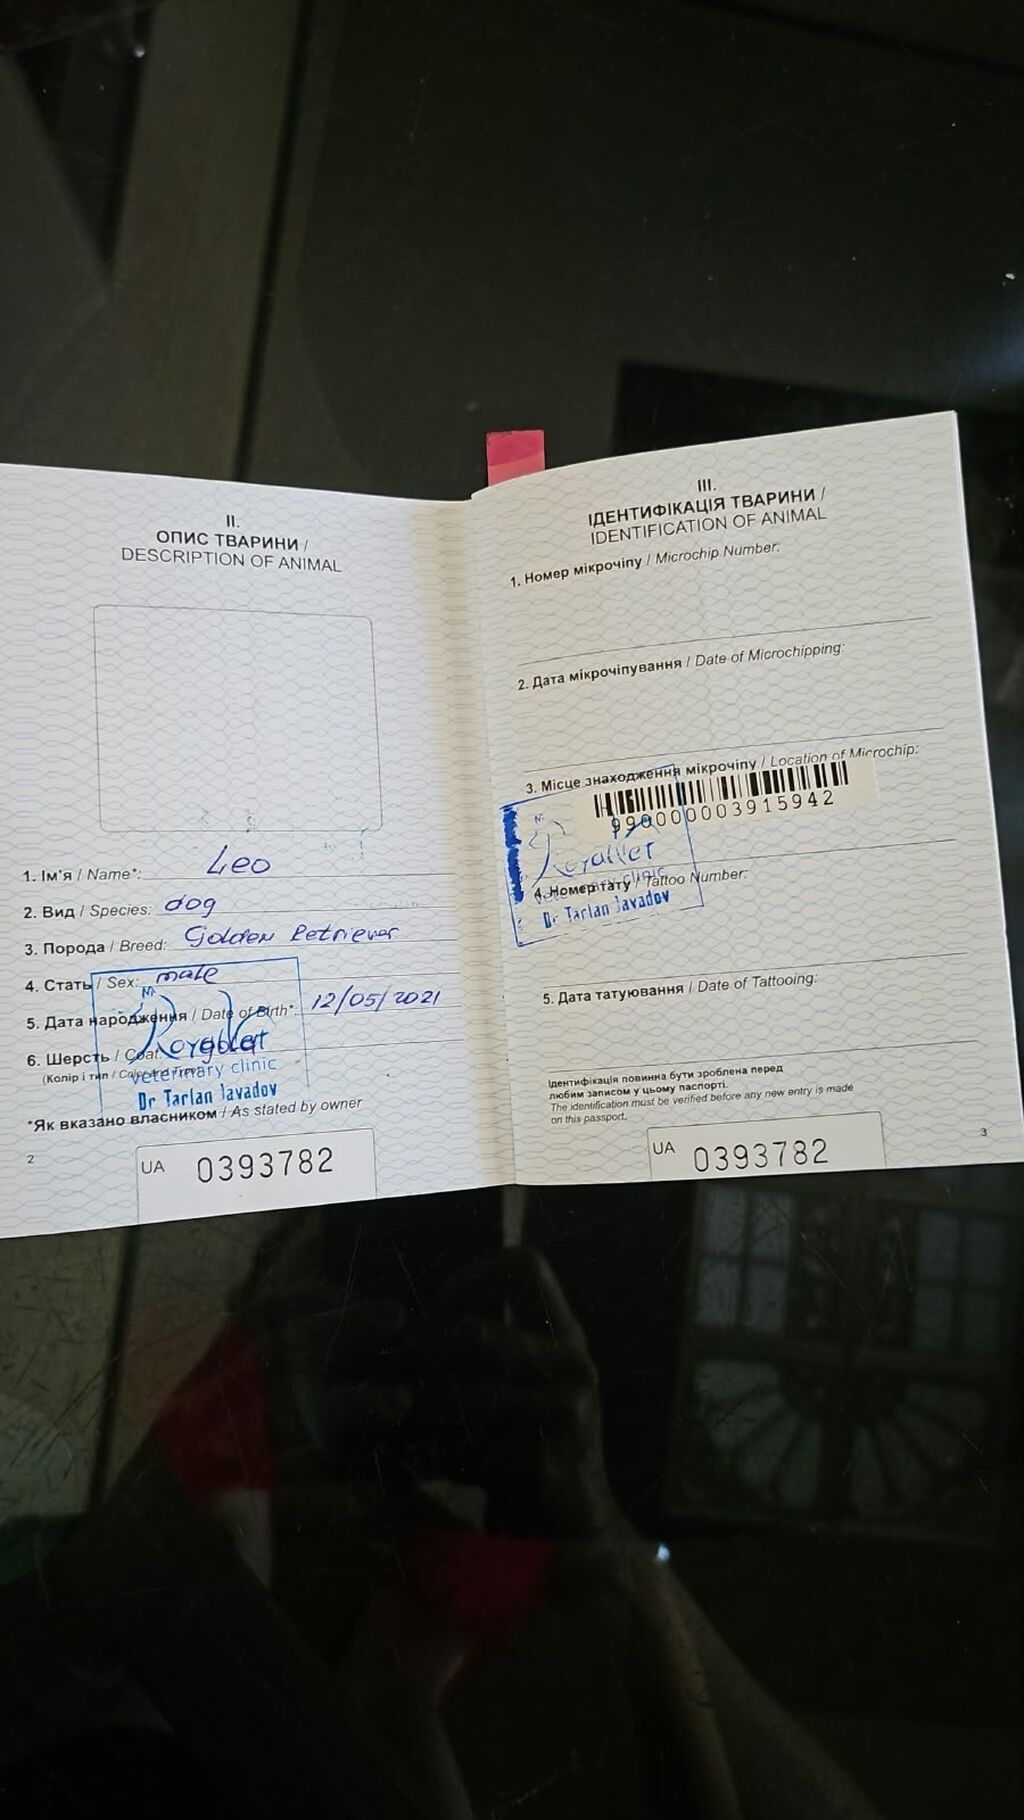 II.
ОПИС ТВАРИНИ /
DESCRIPTION OF ANIMAL
1. Ім'я / Name*: Leo
2. Вид / Species: dog
3. Порода / Breed: Golden Retriever
4. Стать / Sex: male
5. Дата народження / Date of Birth*: 12/05/2021
6. Шерсть / Coat:
(Колір і тип / Color and Type)
RoyalVet
veterinary clinic
Dr Tarlan Javadov
*Як вказано власником / As stated by owner
2
UA 0393782
III.
ІДЕНТИФІКАЦІЯ ТВАРИНИ /
IDENTIFICATION OF ANIMAL
1. Номер мікрочіпу / Microchip Number:
2. Дата мікрочіпування / Date of Microchipping:
3. Місце знаходження мікрочіпу / Location of Microchip:
990000003915942
RoyalVet
veterinary clinic
4. Номер тату / Tattoo Number:
Dr Tarlan Javadov
5. Дата татуювання / Date of Tattooing:
Ідентифікація повинна бути зроблена перед
любим записом у цьому паспорті.
The identification must be verified before any new entry is made
on this passport.
3
UA 0393782